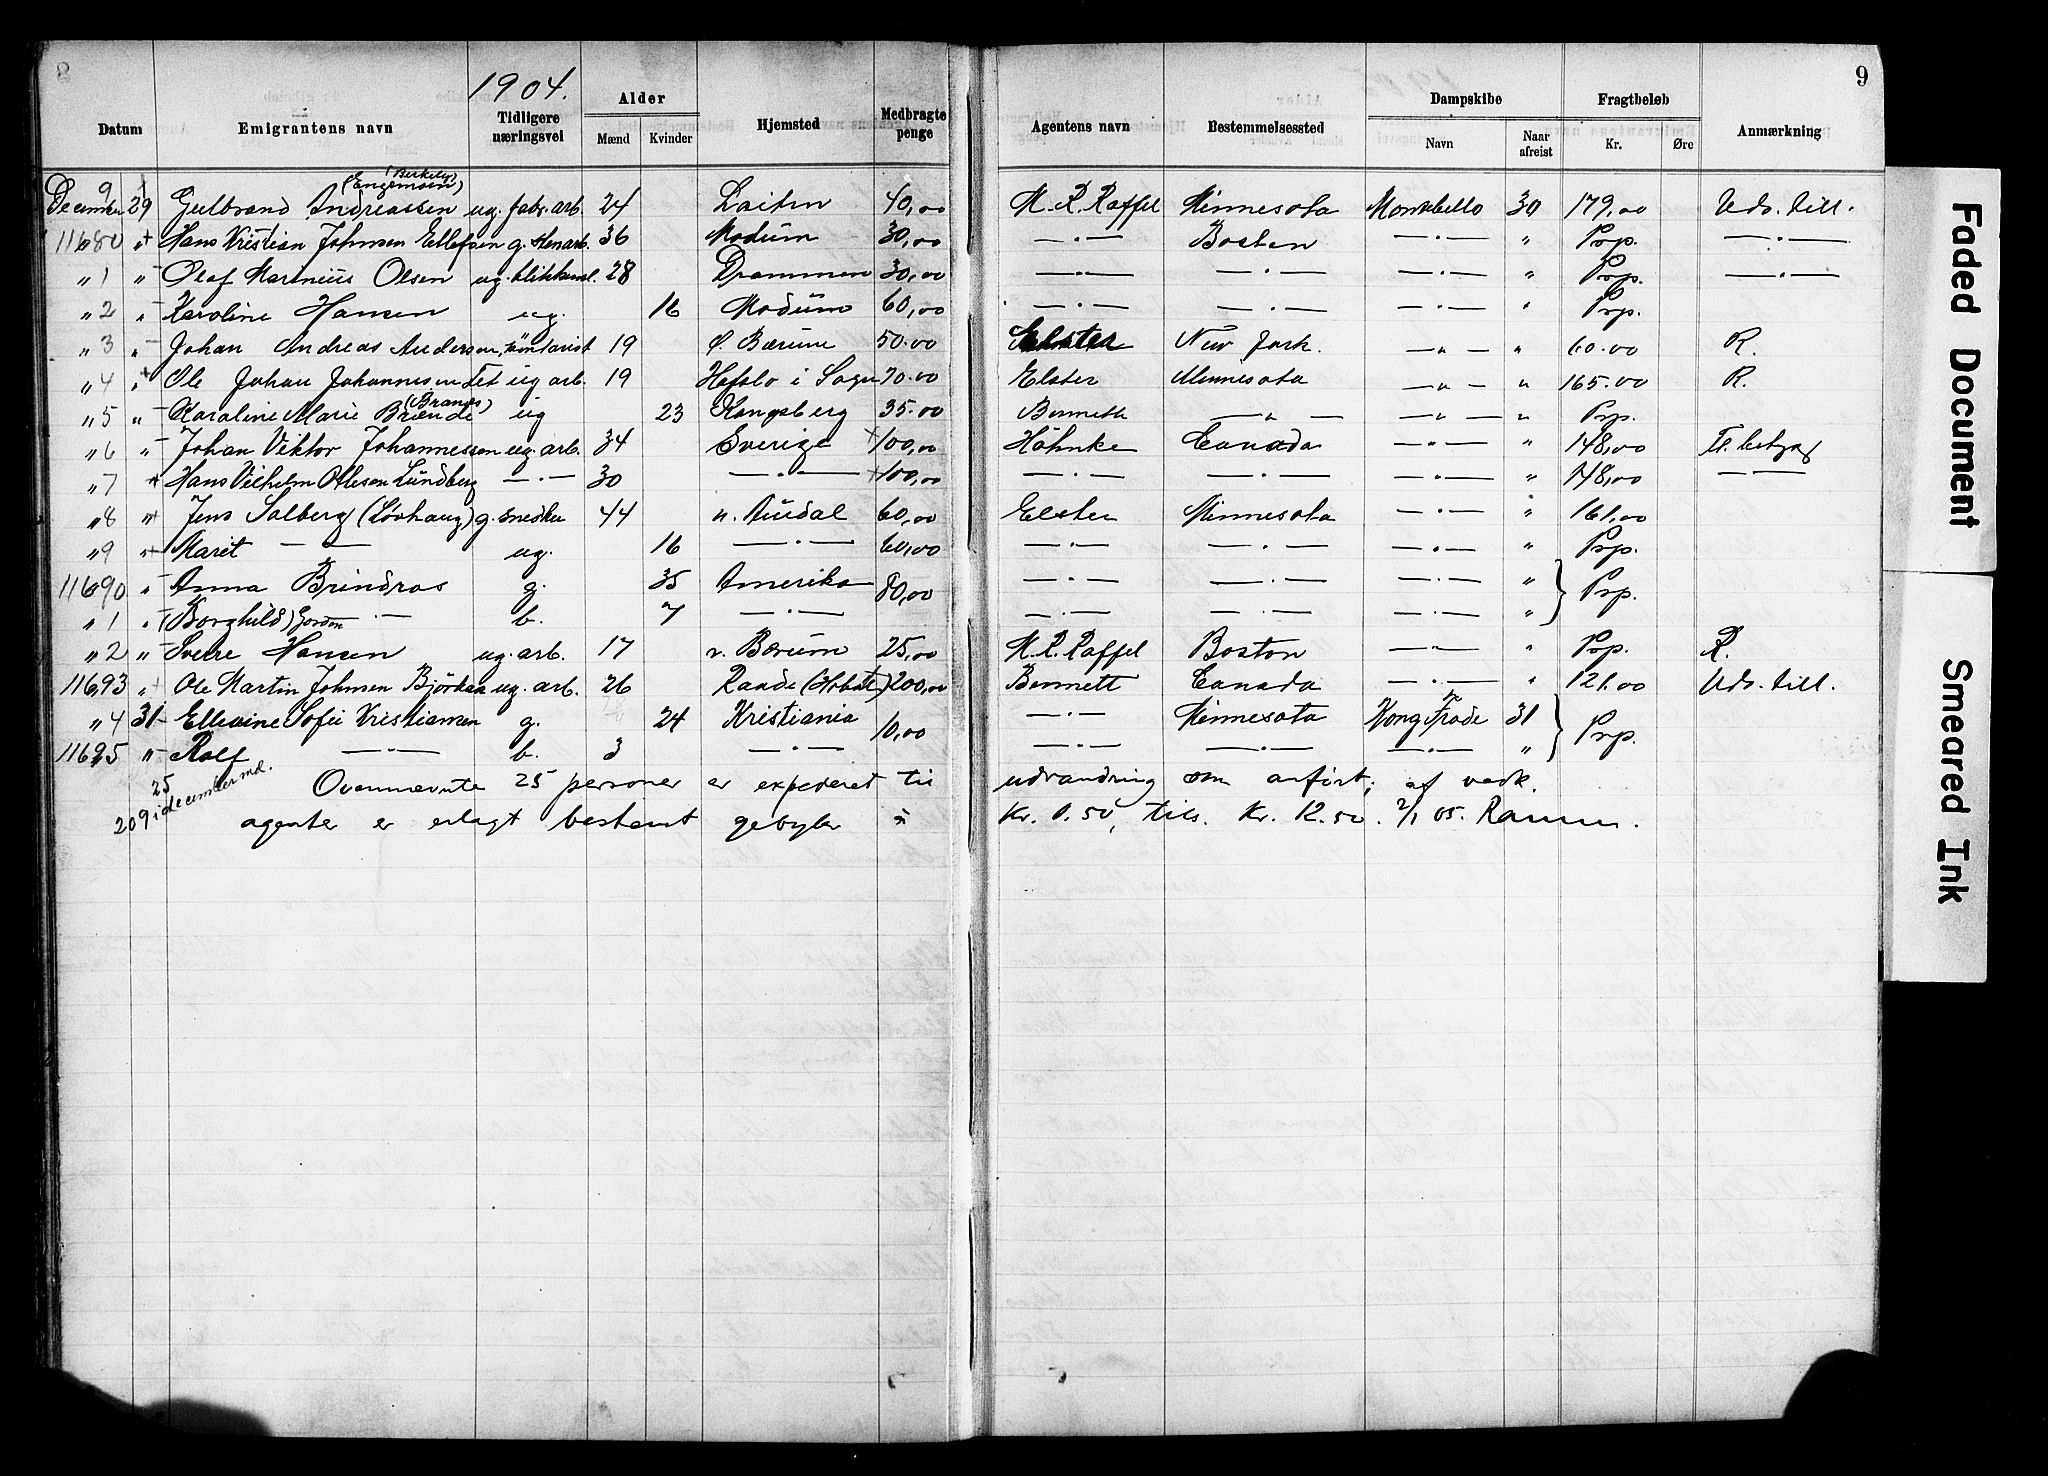 8 9
1904.
Datum Emigrantens navn Tidligere næringsvei Alder Mænd Kvinder Hjemsted Medbragte penge Agentens navn Bestemmelsessted Dampskibe Navn Naar afreist Fragtbeløb Kr. Øre Anmærkning
(Berkely)
(Engemoen)
December 9 29 Gulbrand Andreassen ug. fabr. arb. 24 Løiten 40,00 M. R. Raffel Minnesota Montebello 30 179.00 Uds. till.
11680 " + Hans Kristian Johnsen Ellefsen g. stenarb. 36 Modum 30,00 —"— Boston —"— " Prp. —"—
" 1 " - Olaf Martnius Olsen ug. blikkensl. 28 Drammen 30,00 —"— —"— —"— " Prp. —"—
" 2 " - Karoline Hansen ug. 16 Modum 60,00 —"— —"— —"— " Prp.
" 3 " - Johan Andreas Andersen, kontorist 19 Ø. Bærum 50.00 Elster New York. —"— " 60.00 R.
" 4 " + Ole Johan Johannesen Tet ug arb. 19 Hafslo i Sogn 70.00 Elster Minnesota —"— " 165.00 R.
(Branes)
" 5 " - Karoline Marie Brænde ug 23 Kongsberg 35.00 Bennett —"— —"— " Prp.
" 6 " - Johan Viktor Johannessen ug. arb. 34 Sverige + 100,00 Höhnke Canada —"— " 148,00 Tr. betyg
" 7 + Hans Vilhelm Olleson Lundberg —"— 30 —"— + 100,00 —"— —"— —"— " 148,00 —"—
" 8 " + Jens Solberg (Lovhaug) g. snedker 44 n. Aurdal 60,00 Elster Minnesota —"— " 161.00
" 9 " + Marit —"— ug. 16 —"— 60,00 —"— —"— —"— " Prp.
11690 " - Anna Brindros g. 35 Amerika 80,00 —"— —"— —"— " } Prp.
" 1 " - (Borghild) Gordon —"— b. 7 —"— —"— —"— —"— "
" 2 " - Sverre Hansen ug. arb. 17 v. Bærum 25,00 M. R. Raffel Boston —"— " Prp. R.
11693 " + Ole Martin Johnsen Björkan ug. arb. 26 Raade (Hobøl) 200,00 Bennett Canada —"— " 121.00 Uds. till.
" 4 31 - Ellevine Sofie Kristiansen g. 24 Kristiania 10,00 —"— Minnesota Kong Frode 31 } Prp.
11695 " - Rolf —"— b. 3 —"— —"— —"— —"— "
25 i december md. Ovennævnte 25 personer er expederet til udvandring som anført; af vedk.
209 agenter er erlagt bestemt gebyr à Kr. 0.50, tils. Kr. 12.50. 2/1 05. Ramm.
Faded Document
Smeared Ink